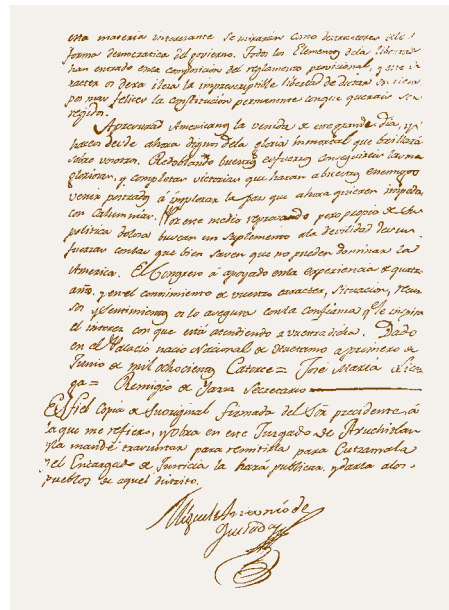 esta materia interesante se mirarán como detractores de l
forma democratica del govierno. Todos los Elementos dela libertad
han entrado enla composicion del reglamento provicional, y este
racter os dexa ilesa la imprescriptible libertad de dictar en tiem
pos mas felices la constitucion permanente conque querais ser
regidos.
Apresurad Americanos la venida de ese grande dia, y
haceos desde ahora dignos dela gloria inmortal que brillará
sobre vosotros. Redoblando vuestros esfuerzos conseguireis las mas
gloriosas, y completas victorias que haran a vuestros enemigos
venir postrados á implorar la paz que ahora quieren impedir
con calumnias. Por este medio reprovado pero propio de su
politica dolosa buscan un suplemento ala devilidad desus
fuerzas conlas que bien saven que no pueden dominar la
America. El Congreso á apoyado enla experiencia de quatro
años, y enel conocimiento de vuestro caracter, situacion, recur
sos y sentimientos os lo asegura conla confianza q.e le inspira
el interes con que está atendiendo a vuestra dicha. Dado
en el Palacio nacio Nacional de Huetamo a primero de
Junio de mil ochocientos Catorce= José Maria Licea
ga= Remigio de Yarza Secretario
Es fiel Copia de su original firmada del Sõr precidente, á
la que me refiero, y obra en este Juzgado de Axuchitlan
y la mandé trasuntar para remitirla para Cutzamala
y el Encargado de Justicia la hará publicar, y darla alos
pueblos de aquel distrito.
Miguel Antonio de